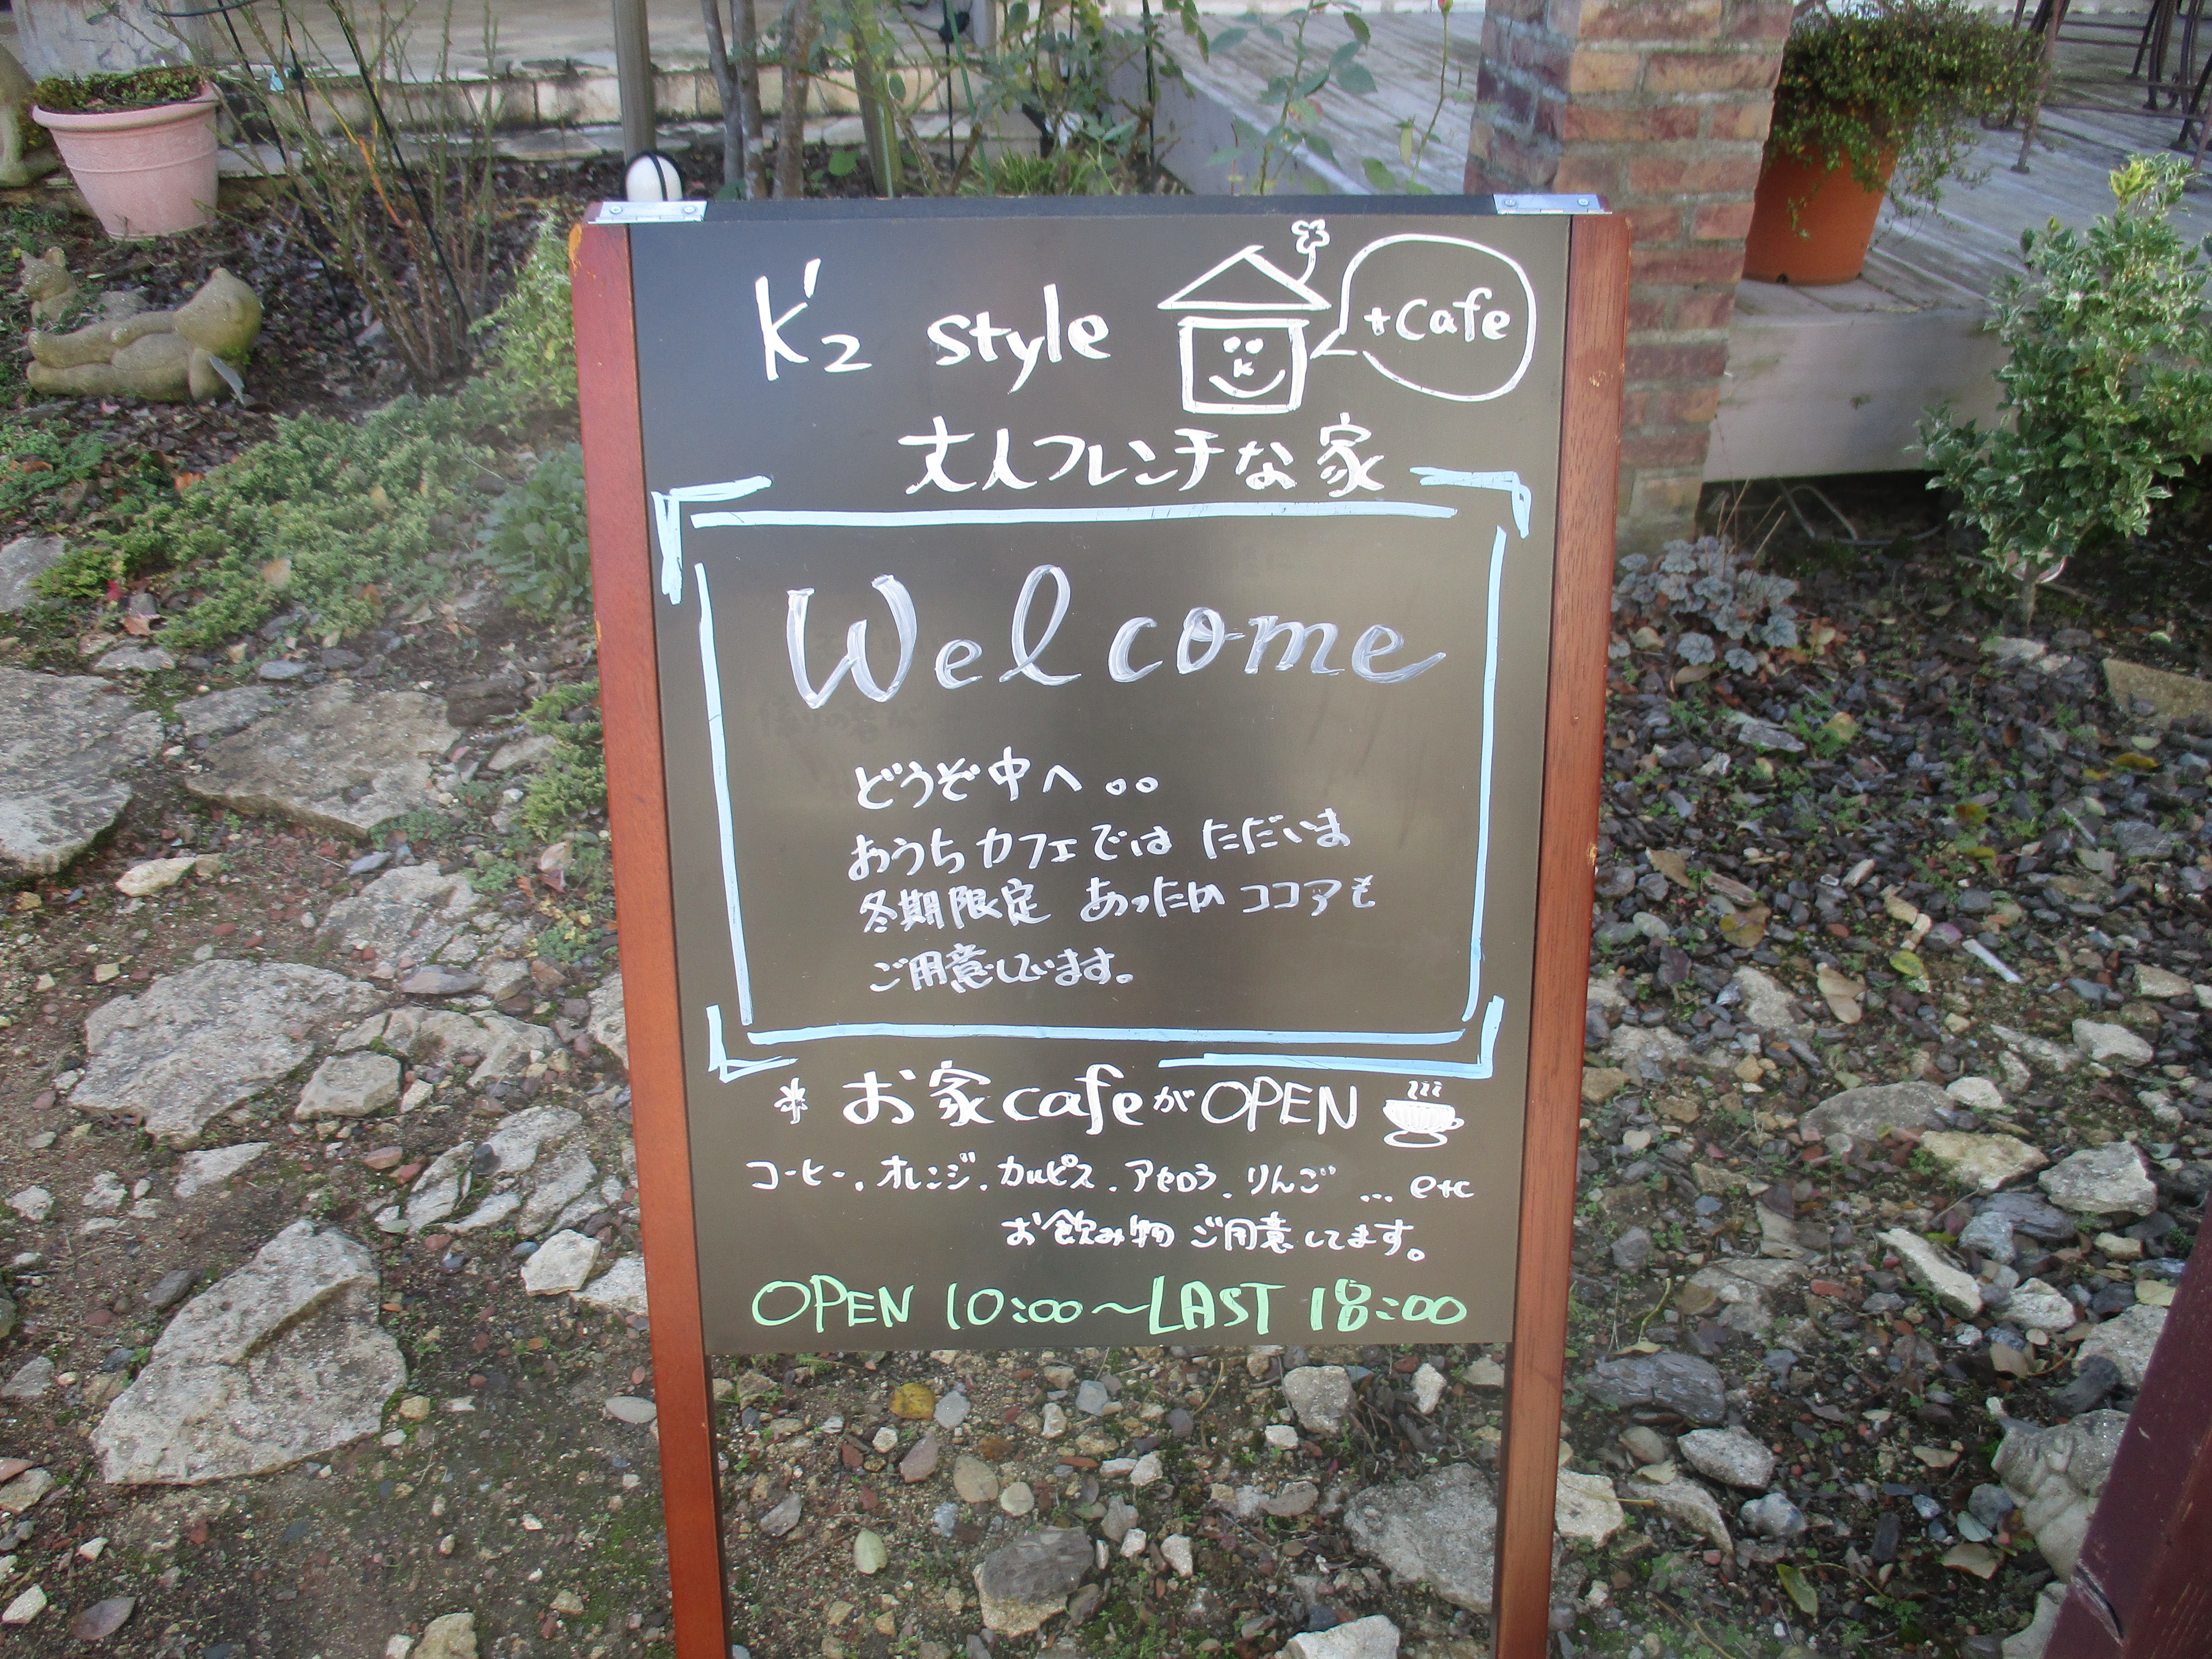 K'2 style +Cafe
大人フレンチな家
Welcome
どうぞ中へ。。
おうちカフェでは ただいま
冬期限定 あったかココアも
ご用意してます。
* お家cafeがOPEN
コーヒー、オレンジ、カルピス、アセロラ、りんご … etc
お飲み物 ご用意してます。
OPEN 10:00~LAST 18:00